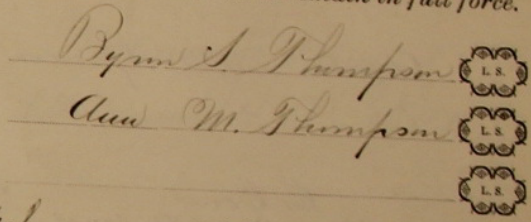 in full force.
Byron S. Thompson L. S.
Ann M. Thompson L. S.
L. S.